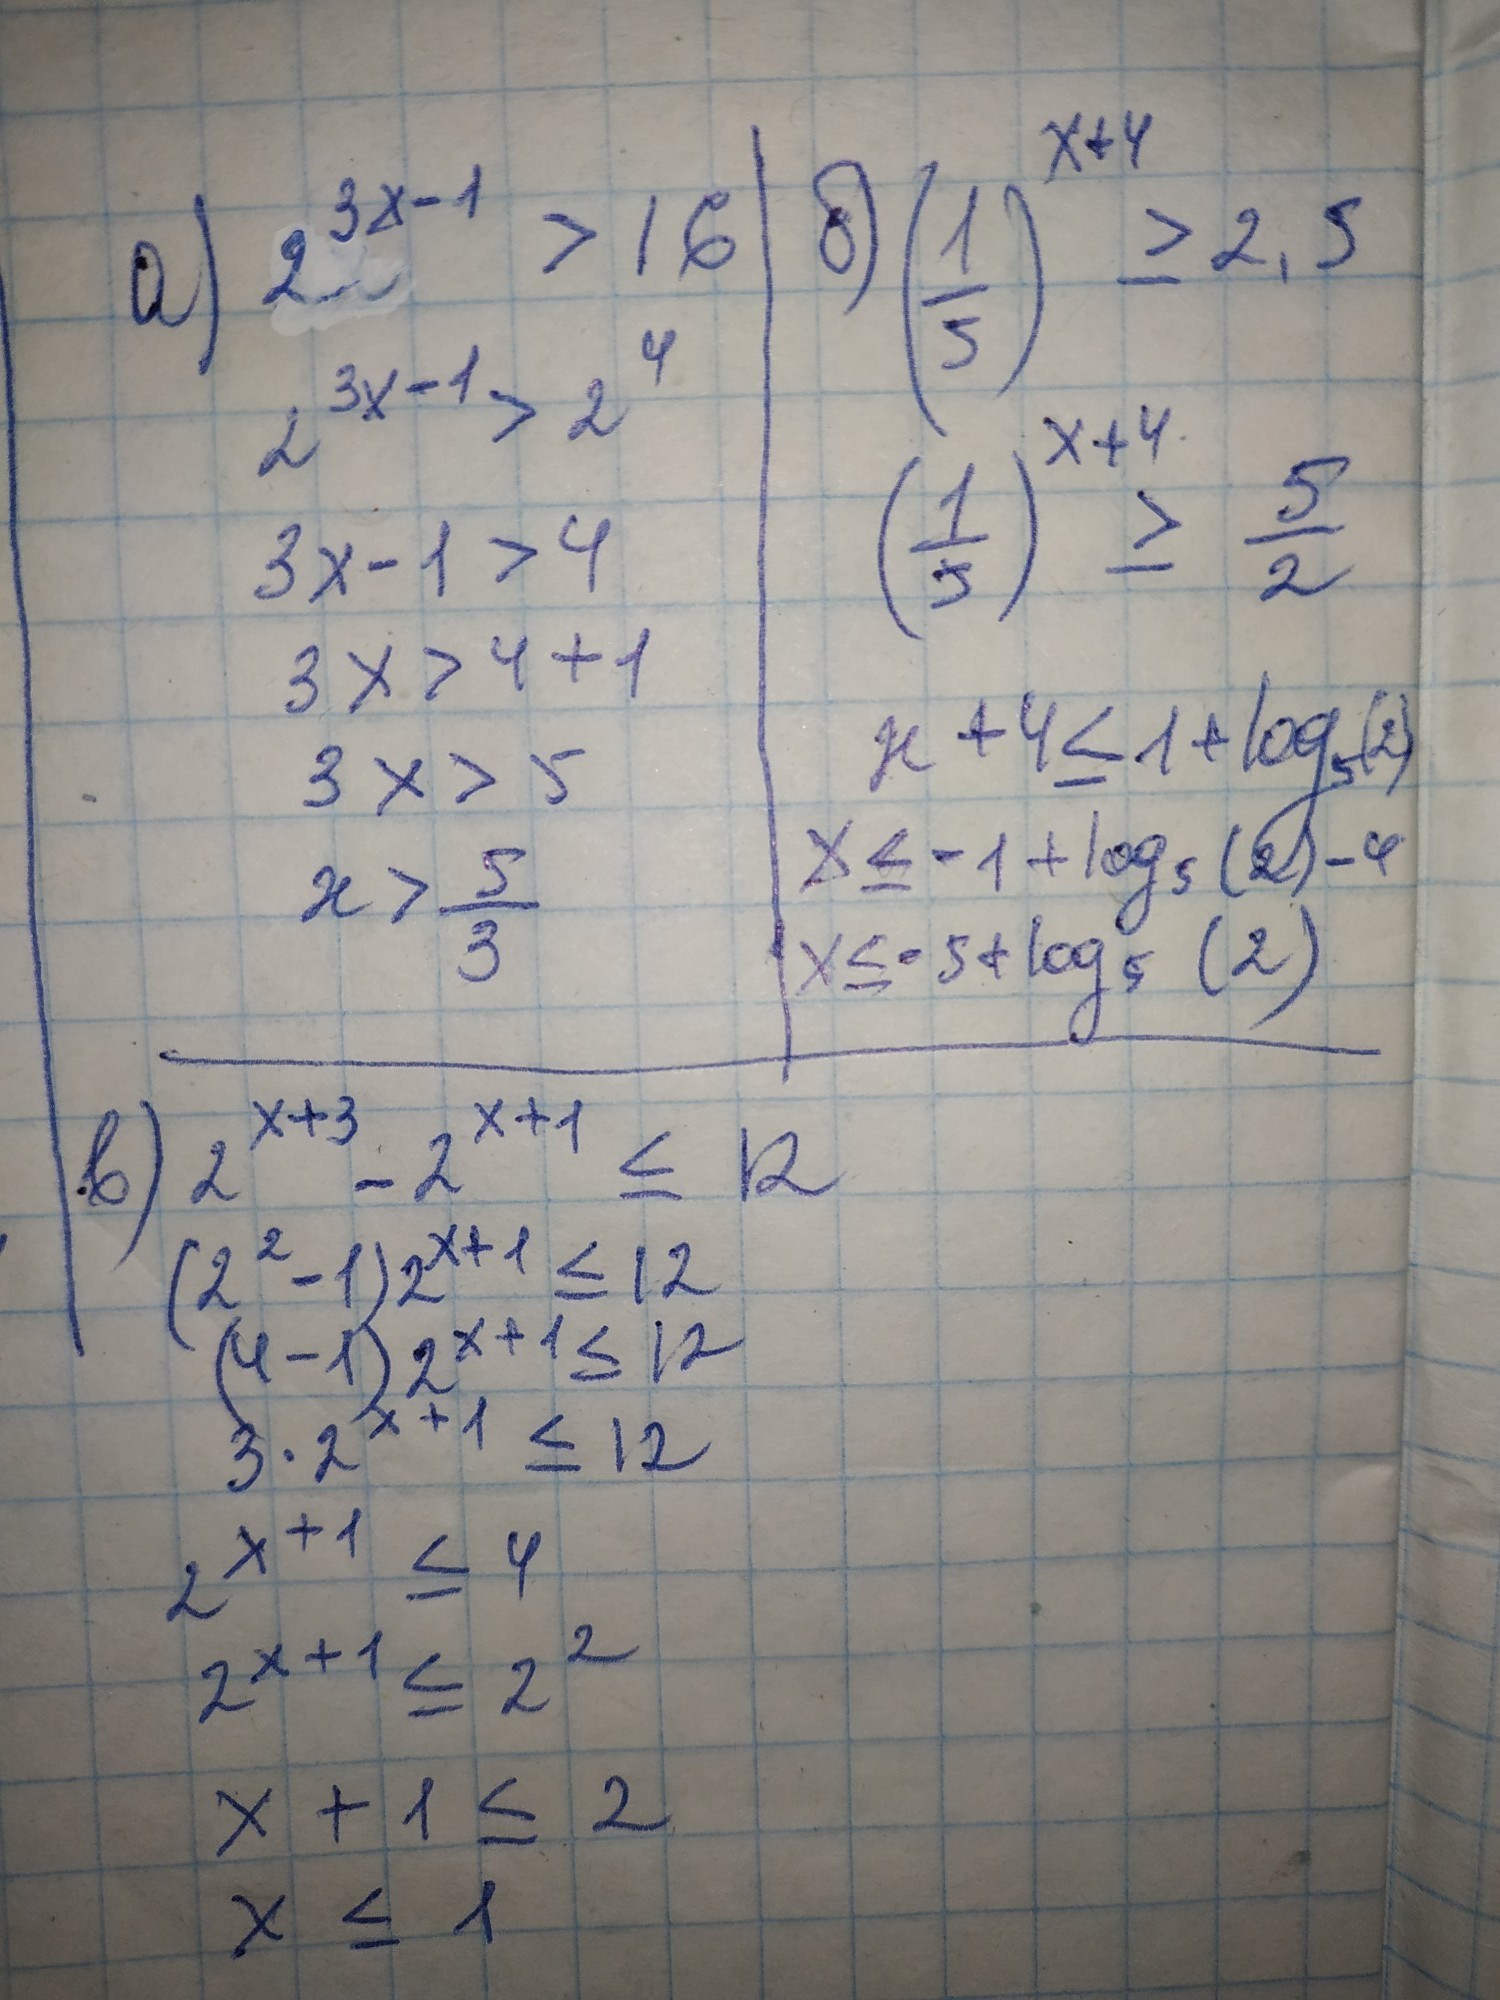 а) 2^{3x-1} > 16
2^{3x-1} > 2^4
3x-1>4
3x>4+1
3x>5
x > 5/3
б) (1/5)^{x+4} ≥ 2,5
(1/5)^{x+4} ≥ 5/2
x+4≤1+log_5(2)
x≤-1+log_5(2)-4
x≤-5+log_5(2)
в) 2^{x+3} - 2^{x+1} ≤ 12
(2^2-1)2^{x+1} ≤ 12
(4-1)2^{x+1} ≤ 12
3·2^{x+1} ≤ 12
2^{x+1} ≤ 4
2^{x+1} ≤ 2^2
x+1 ≤ 2
x ≤ 1